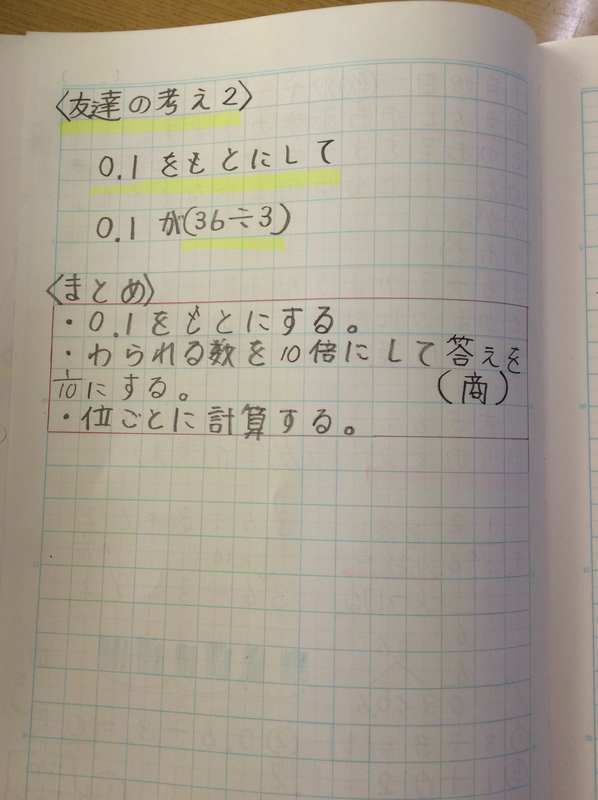 〈友達の考え2〉
0.1をもとにして
0.1が(36÷3)
〈まとめ〉
・0.1をもとにする。
・わられる数を10倍にして答えを
1/10にする。(商)
・位ごとに計算する。